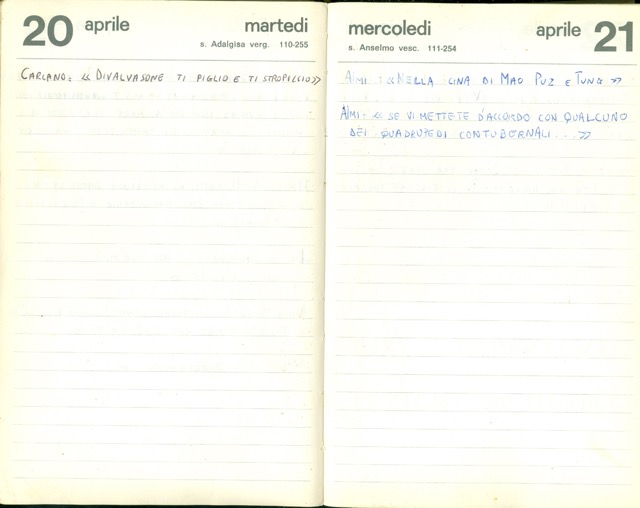 20 aprile martedi
s. Adalgisa verg. 110-255
CARLANO: « DIVALVASONE TI PIGLIO E TI STROPICCIO»
mercoledi aprile 21
s. Anselmo vesc. 111-254
AIMI: «NELLA CINA DI MAO PUZ E TUNG »
AIMI: « SE VI METTETE D'ACCORDO CON QUALCUNO
DEI QUADRUPEDI CONTUBERNALI...»